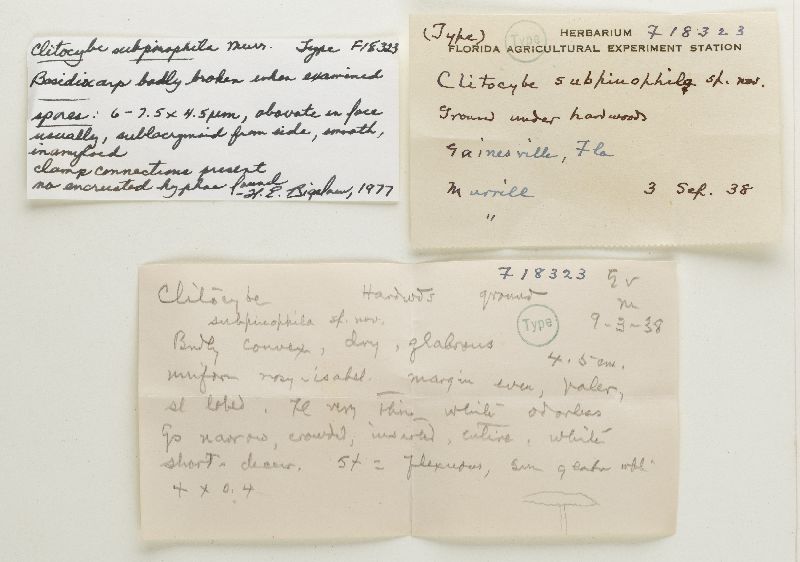 Clitocybe subpinophila Murr. Type F18323
Basidiocarp badly broken when examined
spores: 6-7.5 x 4.5µm, obovate in face
usually, sublacrymoid from side, smooth,
inamyloid
clamp connections present
no encrusted hyphae found
-H.E. Bigelow, 1977
(Type) Type HERBARIUM F18323
FLORIDA AGRICULTURAL EXPERIMENT STATION
Clitocybe subpinophila sp. nov.
Ground under hardwoods
Gainesville, Fla
Murrill 3 Sep. 38
"
F18323 Gv
Clitocybe Hardwds ground M
subpinophila sp. nov. Type 9-3-38
Brdly convex, dry, glabrous 4.5 cm.
uniform rosy-isabel. margin even, paler,
sl lobed. Fl very thin white odorless
Gs narrow, crowded, inserted, entire, white
short-decur. St = flexuous, sm glabr
4 x 0.4